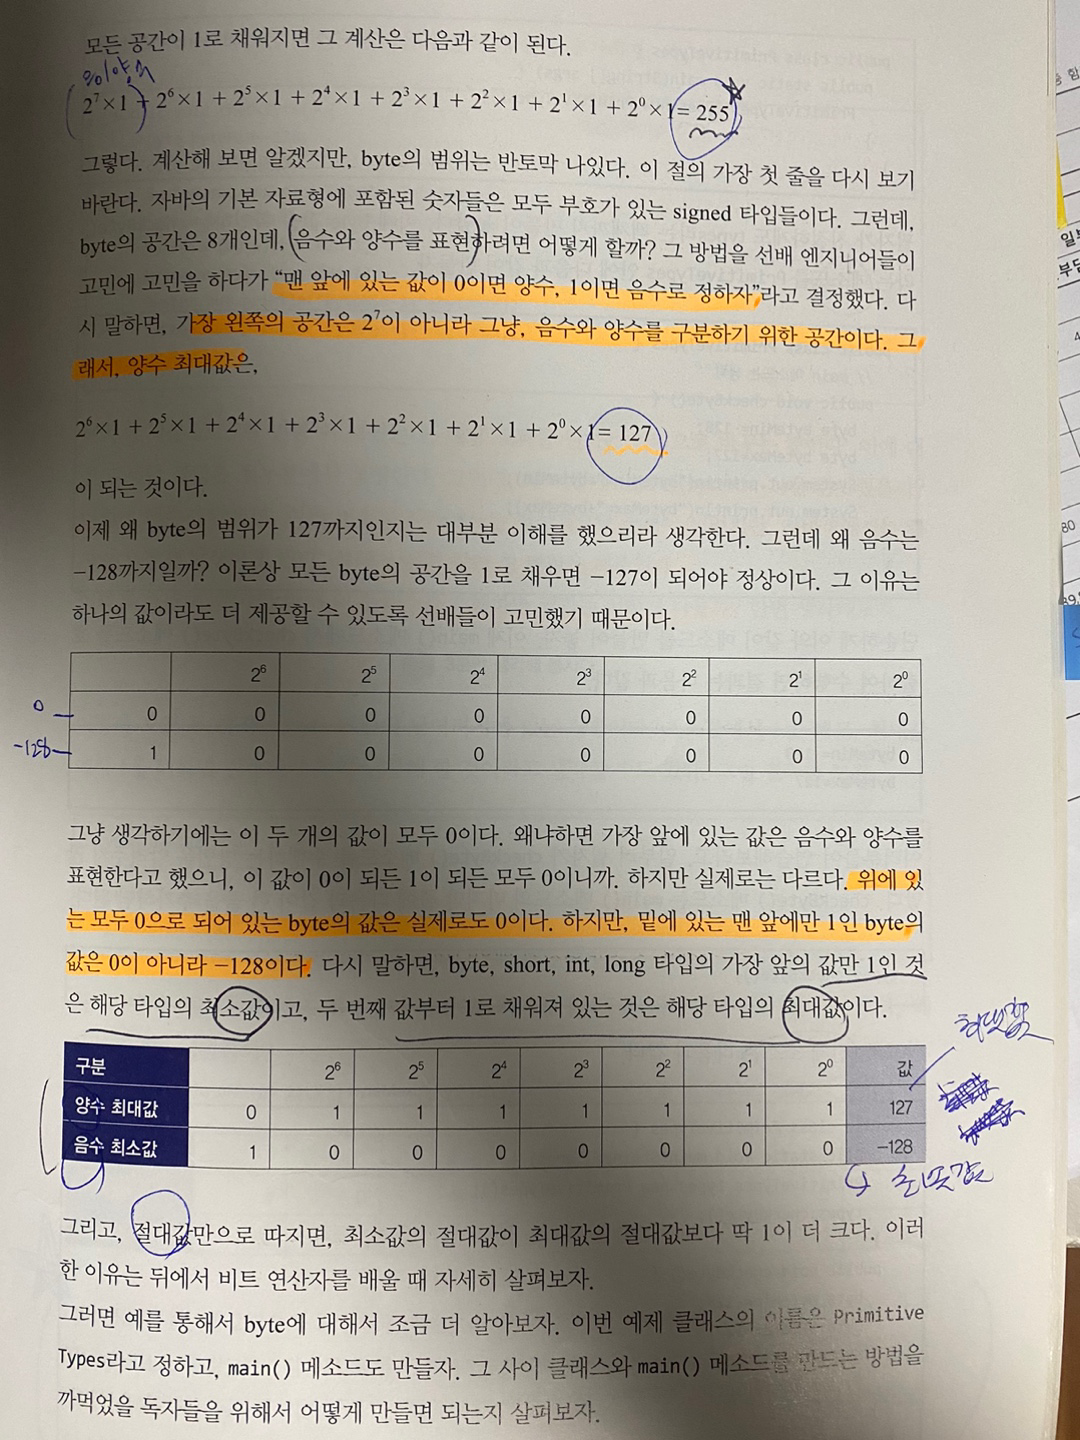 모든 공간이 1로 채워지면 그 계산은 다음과 같이 된다.
2⁷×1 + 2⁶×1 + 2⁵×1 + 2⁴×1 + 2³×1 + 2²×1 + 2¹×1 + 2⁰×1 = 255
그렇다. 계산해 보면 알겠지만, byte의 범위는 반토막 나있다. 이 절의 가장 첫 줄을 다시 보기
바란다. 자바의 기본 자료형에 포함된 숫자들은 모두 부호가 있는 signed 타입들이다. 그런데,
byte의 공간은 8개인데, 음수와 양수를 표현하려면 어떻게 할까? 그 방법을 선배 엔지니어들이
고민에 고민을 하다가 “맨 앞에 있는 값이 0이면 양수, 1이면 음수로 정하자”라고 결정했다. 다
시 말하면, 가장 왼쪽의 공간은 2⁷이 아니라 그냥, 음수와 양수를 구분하기 위한 공간이다. 그
래서, 양수 최대값은,
2⁶×1 + 2⁵×1 + 2⁴×1 + 2³×1 + 2²×1 + 2¹×1 + 2⁰×1 = 127
이 되는 것이다.
이제 왜 byte의 범위가 127까지인지는 대부분 이해를 했으리라 생각한다. 그런데 왜 음수는
−128까지일까? 이론상 모든 byte의 공간을 1로 채우면 −127이 되어야 정상이다. 그 이유는
하나의 값이라도 더 제공할 수 있도록 선배들이 고민했기 때문이다.
2⁶ 2⁵ 2⁴ 2³ 2² 2¹ 2⁰
0 0 0 0 0 0 0 0 0
-128 1 0 0 0 0 0 0 0
그냥 생각하기에는 이 두 개의 값이 모두 0이다. 왜냐하면 가장 앞에 있는 값은 음수와 양수를
표현한다고 했으니, 이 값이 0이 되든 1이 되든 모두 0이니까. 하지만 실제로는 다르다. 위에 있
는 모두 0으로 되어 있는 byte의 값은 실제로도 0이다. 하지만, 밑에 있는 맨 앞에만 1인 byte의
값은 0이 아니라 −128이다. 다시 말하면, byte, short, int, long 타입의 가장 앞의 값만 1인 것
은 해당 타입의 최소값이고, 두 번째 값부터 1로 채워져 있는 것은 해당 타입의 최대값이다.
최댓값
구분 2⁶ 2⁵ 2⁴ 2³ 2² 2¹ 2⁰ 값
양수 최대값 0 1 1 1 1 1 1 1 127
음수 최소값 1 0 0 0 0 0 0 0 −128
최솟값
그리고, 절대값만으로 따지면, 최소값의 절대값이 최대값의 절대값보다 딱 1이 더 크다. 이러
한 이유는 뒤에서 비트 연산자를 배울 때 자세히 살펴보자.
그러면 예를 통해서 byte에 대해서 조금 더 알아보자. 이번 예제 클래스의 이름은 Primitive
Types라고 정하고, main() 메소드도 만들자. 그 사이 클래스와 main() 메소드를 만드는 방법을
까먹었을 독자들을 위해서 어떻게 만들면 되는지 살펴보자.